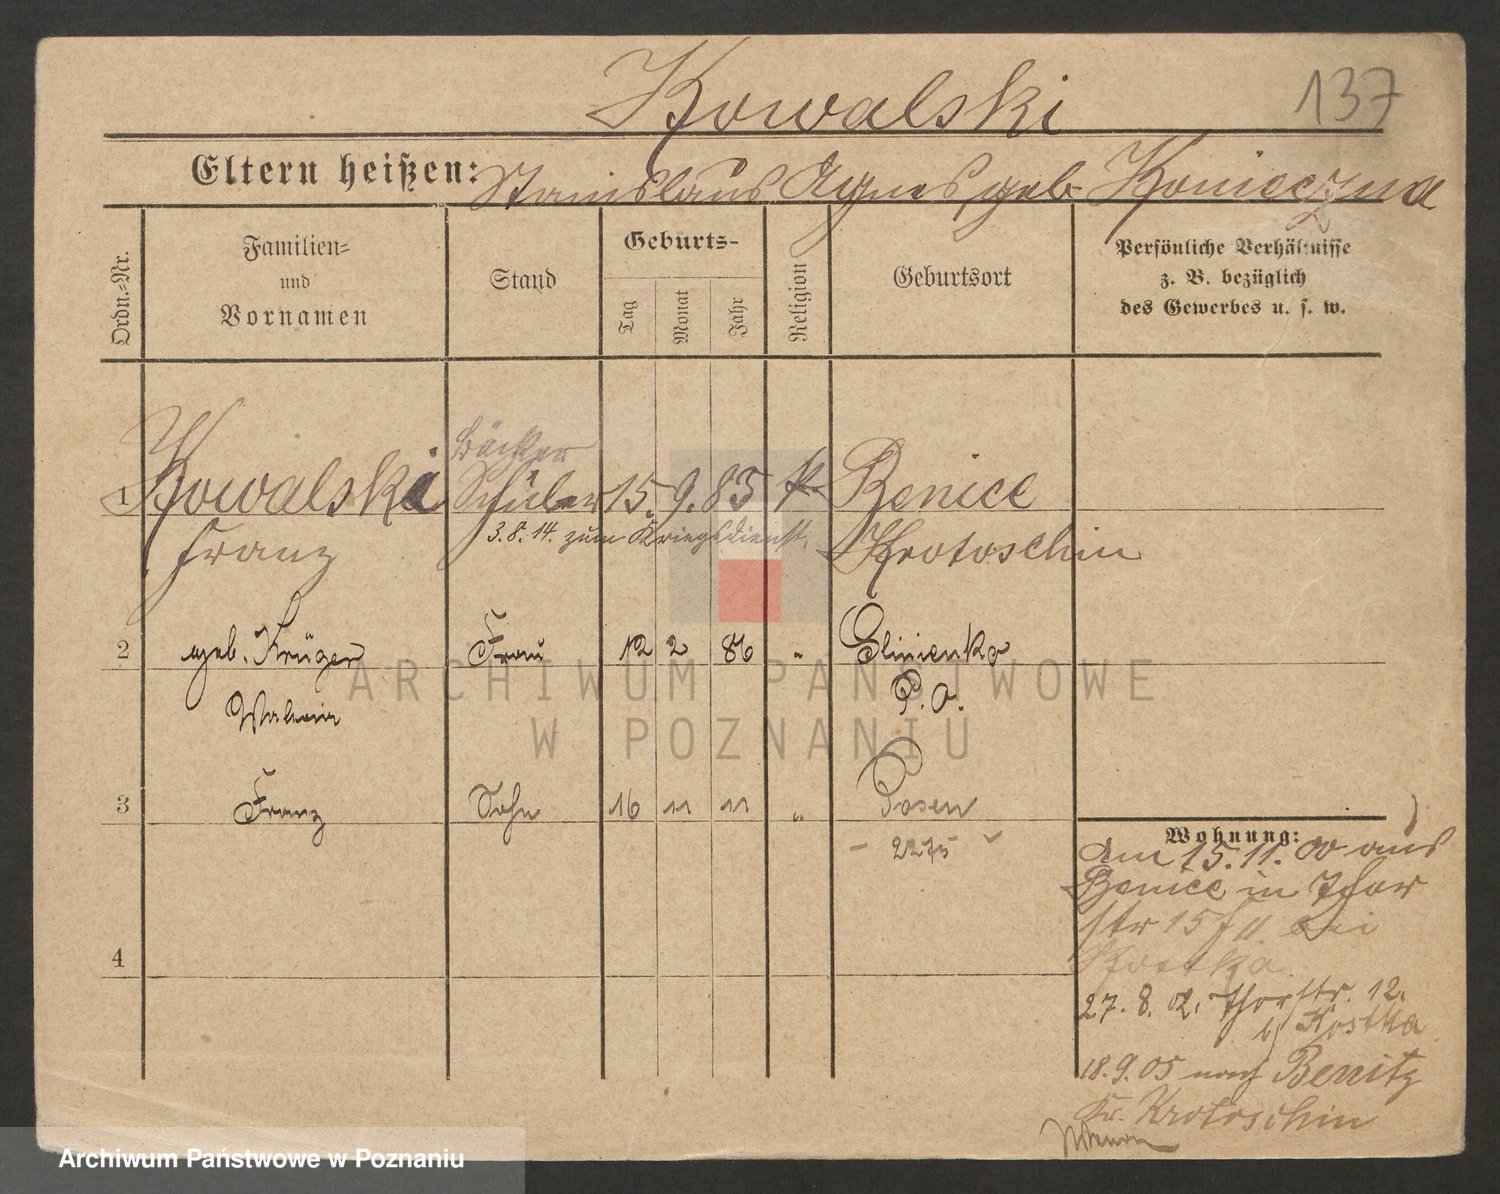 137
Kowalski
Eltern heißen: Stanislaus Agnes geb Konieczna
Ordn.-Nr.
Familien-
und
Vornamen
Stand
Geburts-
Tag
Monat
Jahr
Religion
Geburtsort
Persönliche Verhältnisse
z. B. bezüglich
des Gewerbes u. s. w.
Bäcker
1 Kowalski Schüler 15. 9. 85 k Benice
3.8.14. zum Kriegsdienst.
Franz Krotoschin
2 geb. Krüger Frau 12 2 86 " Glinienko
Waleria P. O.
3 Franz Sohn 16 11 11 " Posen
- 2275
4
Wohnung:
Am 15.11.00 aus
Benice in Thor
str 15 bei
Kostka
27. 8. 02. Thorstr. 12.
b/ Kostka
18.9.05 nach Benitz
Kr. Krotoschin
ARCHIWUM PAŃSTWOWE
W POZNANIU
Archiwum Państwowe w Poznaniu